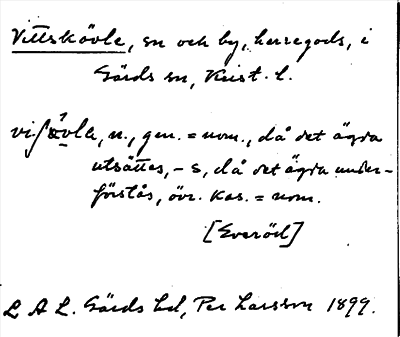 Vittskövle, sn och by, herregods, i
Gärds sn, Krist. l.
n., gen. = nom., då det ägda
utsättes, - s, då det ägda under-
förstås, övr. kas. = nom.
[Everöd]
L A L. Gärds hd, Per Larsson 1899.